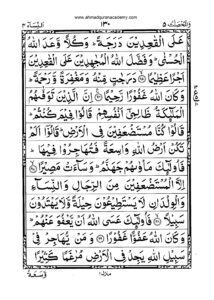 www.ahmadquranacademy.com
النسآء ٤
١٣٠
والمحصنت ٥
عَلَى الْقٰعِدِيْنَ دَرَجَةً ؕ وَكُلًّا وَّعَدَ اللّٰهُ
الْحُسْنٰى ؕ وَفَضَّلَ اللّٰهُ الْمُجٰهِدِيْنَ عَلَى الْقٰعِدِيْنَ
اَجْرًا عَظِيْمًا ۙ دَرَجٰتٍ مِّنْهُ وَمَغْفِرَةً وَّرَحْمَةً ؕ
وَكَانَ اللّٰهُ غَفُوْرًا رَّحِيْمًا ۠ اِنَّ الَّذِيْنَ تَوَفّٰىهُمُ
الْمَلٰٓئِكَةُ ظَالِمِيْٓ اَنْفُسِهِمْ قَالُوْا فِيْمَ كُنْتُمْ ؕ
قَالُوْا كُنَّا مُسْتَضْعَفِيْنَ فِي الْاَرْضِ ؕ قَالُوْٓا اَلَمْ
تَكُنْ اَرْضُ اللّٰهِ وَاسِعَةً فَتُهَاجِرُوْا فِيْهَا ؕ
فَاُولٰٓئِكَ مَاْوٰىهُمْ جَهَنَّمُ ؕ وَسَآءَتْ مَصِيْرًا ۙ
اِلَّا الْمُسْتَضْعَفِيْنَ مِنَ الرِّجَالِ وَالنِّسَآءِ
وَالْوِلْدَانِ لَا يَسْتَطِيْعُوْنَ حِيْلَةً وَّلَا يَهْتَدُوْنَ
سَبِيْلًا ۙ فَاُولٰٓئِكَ عَسَى اللّٰهُ اَنْ يَّعْفُوَ عَنْهُمْ ؕ
وَكَانَ اللّٰهُ عَفُوًّا غَفُوْرًا وَمَنْ يُّهَاجِرْ فِيْ
سَبِيْلِ اللّٰهِ يَجِدْ فِي الْاَرْضِ مُرٰغَمًا كَثِيْرًا
وَّسَعَةً ؕ
منزل١